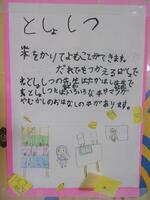 としょしつ
本をかりてよむことができます。
だれでもつかえるばしょで
す。としょしつの先生はたかはし先生で
す。としょしつはいろいろな本やマンガ
やむかしのおはなしの本があります。